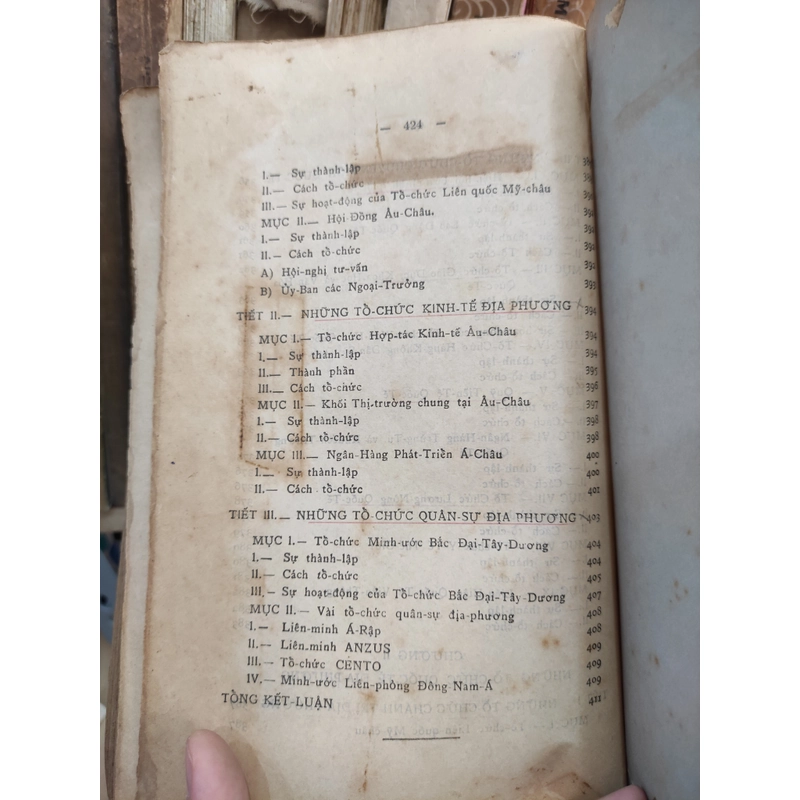 — 424 —
I.— Sự thành-lập
II.— Cách tổ-chức
III.— Sự hoạt-động của Tổ-chức Liên quốc Mỹ-châu
MỤC II.— Hội Đồng Âu-Châu.
I.— Sự thành-lập
II.— Cách tổ-chức
A) Hội-nghị tư-vấn
B) Ủy-Ban các Ngoại-Trưởng 393
TIẾT II.— NHỮNG TỔ-CHỨC KINH-TẾ ĐỊA PHƯƠNG 394
MỤC I.— Tổ-chức Hợp-tác Kinh-tế Âu-Châu 394
I.— Sự thành-lập 394
II.— Thành phần 395
III.— Cách tổ-chức 396
MỤC II.— Khối Thị-trường chung tại Âu-Châu 397
I.— Sự thành-lập 398
II.— Cách tổ-chức 398
MỤC III.— Ngân-Hàng Phát-Triển Á-Châu 400
I.— Sự thành-lập 400
II.— Cách tổ-chức 401
TIẾT III.— NHỮNG TỔ-CHỨC QUÂN-SỰ ĐỊA PHƯƠNG 403
MỤC I.— Tổ-chức Minh-ước Bắc Đại-Tây-Dương 404
I.— Sự thành-lập 404
II.— Cách tổ-chức 405
III.— Sự hoạt-động của Tổ-chức Bắc Đại-Tây-Dương 407
MỤC II.— Vài tổ-chức quân-sự địa-phương 408
I.— Liên-minh Á-Rập 408
II.— Liên-minh ANZUS 409
III.— Tổ-chức CENTO 409
IV.— Minh-ước Liên-phòng Đông-Nam-Á 409
TỔNG KẾT-LUẬN 411